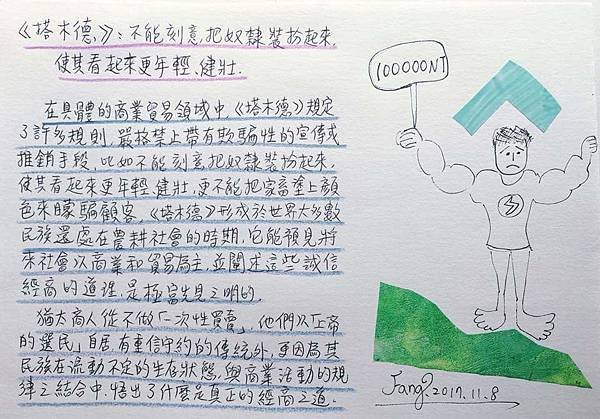 《塔木德》：不能刻意把奴隸裝扮起來，
使其看起來更年輕、健壯．
在具體的商業貿易領域中，《塔木德》規定
了許多規則，嚴格禁止帶有欺騙性的宣傳或
推銷手段．比如不能刻意把奴隸裝扮起來，
使其看起來更年輕、健壯，更不能把家畜塗上顏
色來矇騙顧客．《塔木德》形成於世界大多數
民族還處在農耕社會的時期，它能預見將
來社會以商業和貿易為主，並闡述這些誠信
經商的道理，是極富先見之明的．
猶太商人從不做「一次性買賣」，他們以「上帝
的選民」自居，有重信守約的傳統外，更因為其
民族在流動不定的生存狀態，與商業活動的規
律之結合中，悟出了什麼是真正的經商之道．
100000NT
Jang. 2017.11.8